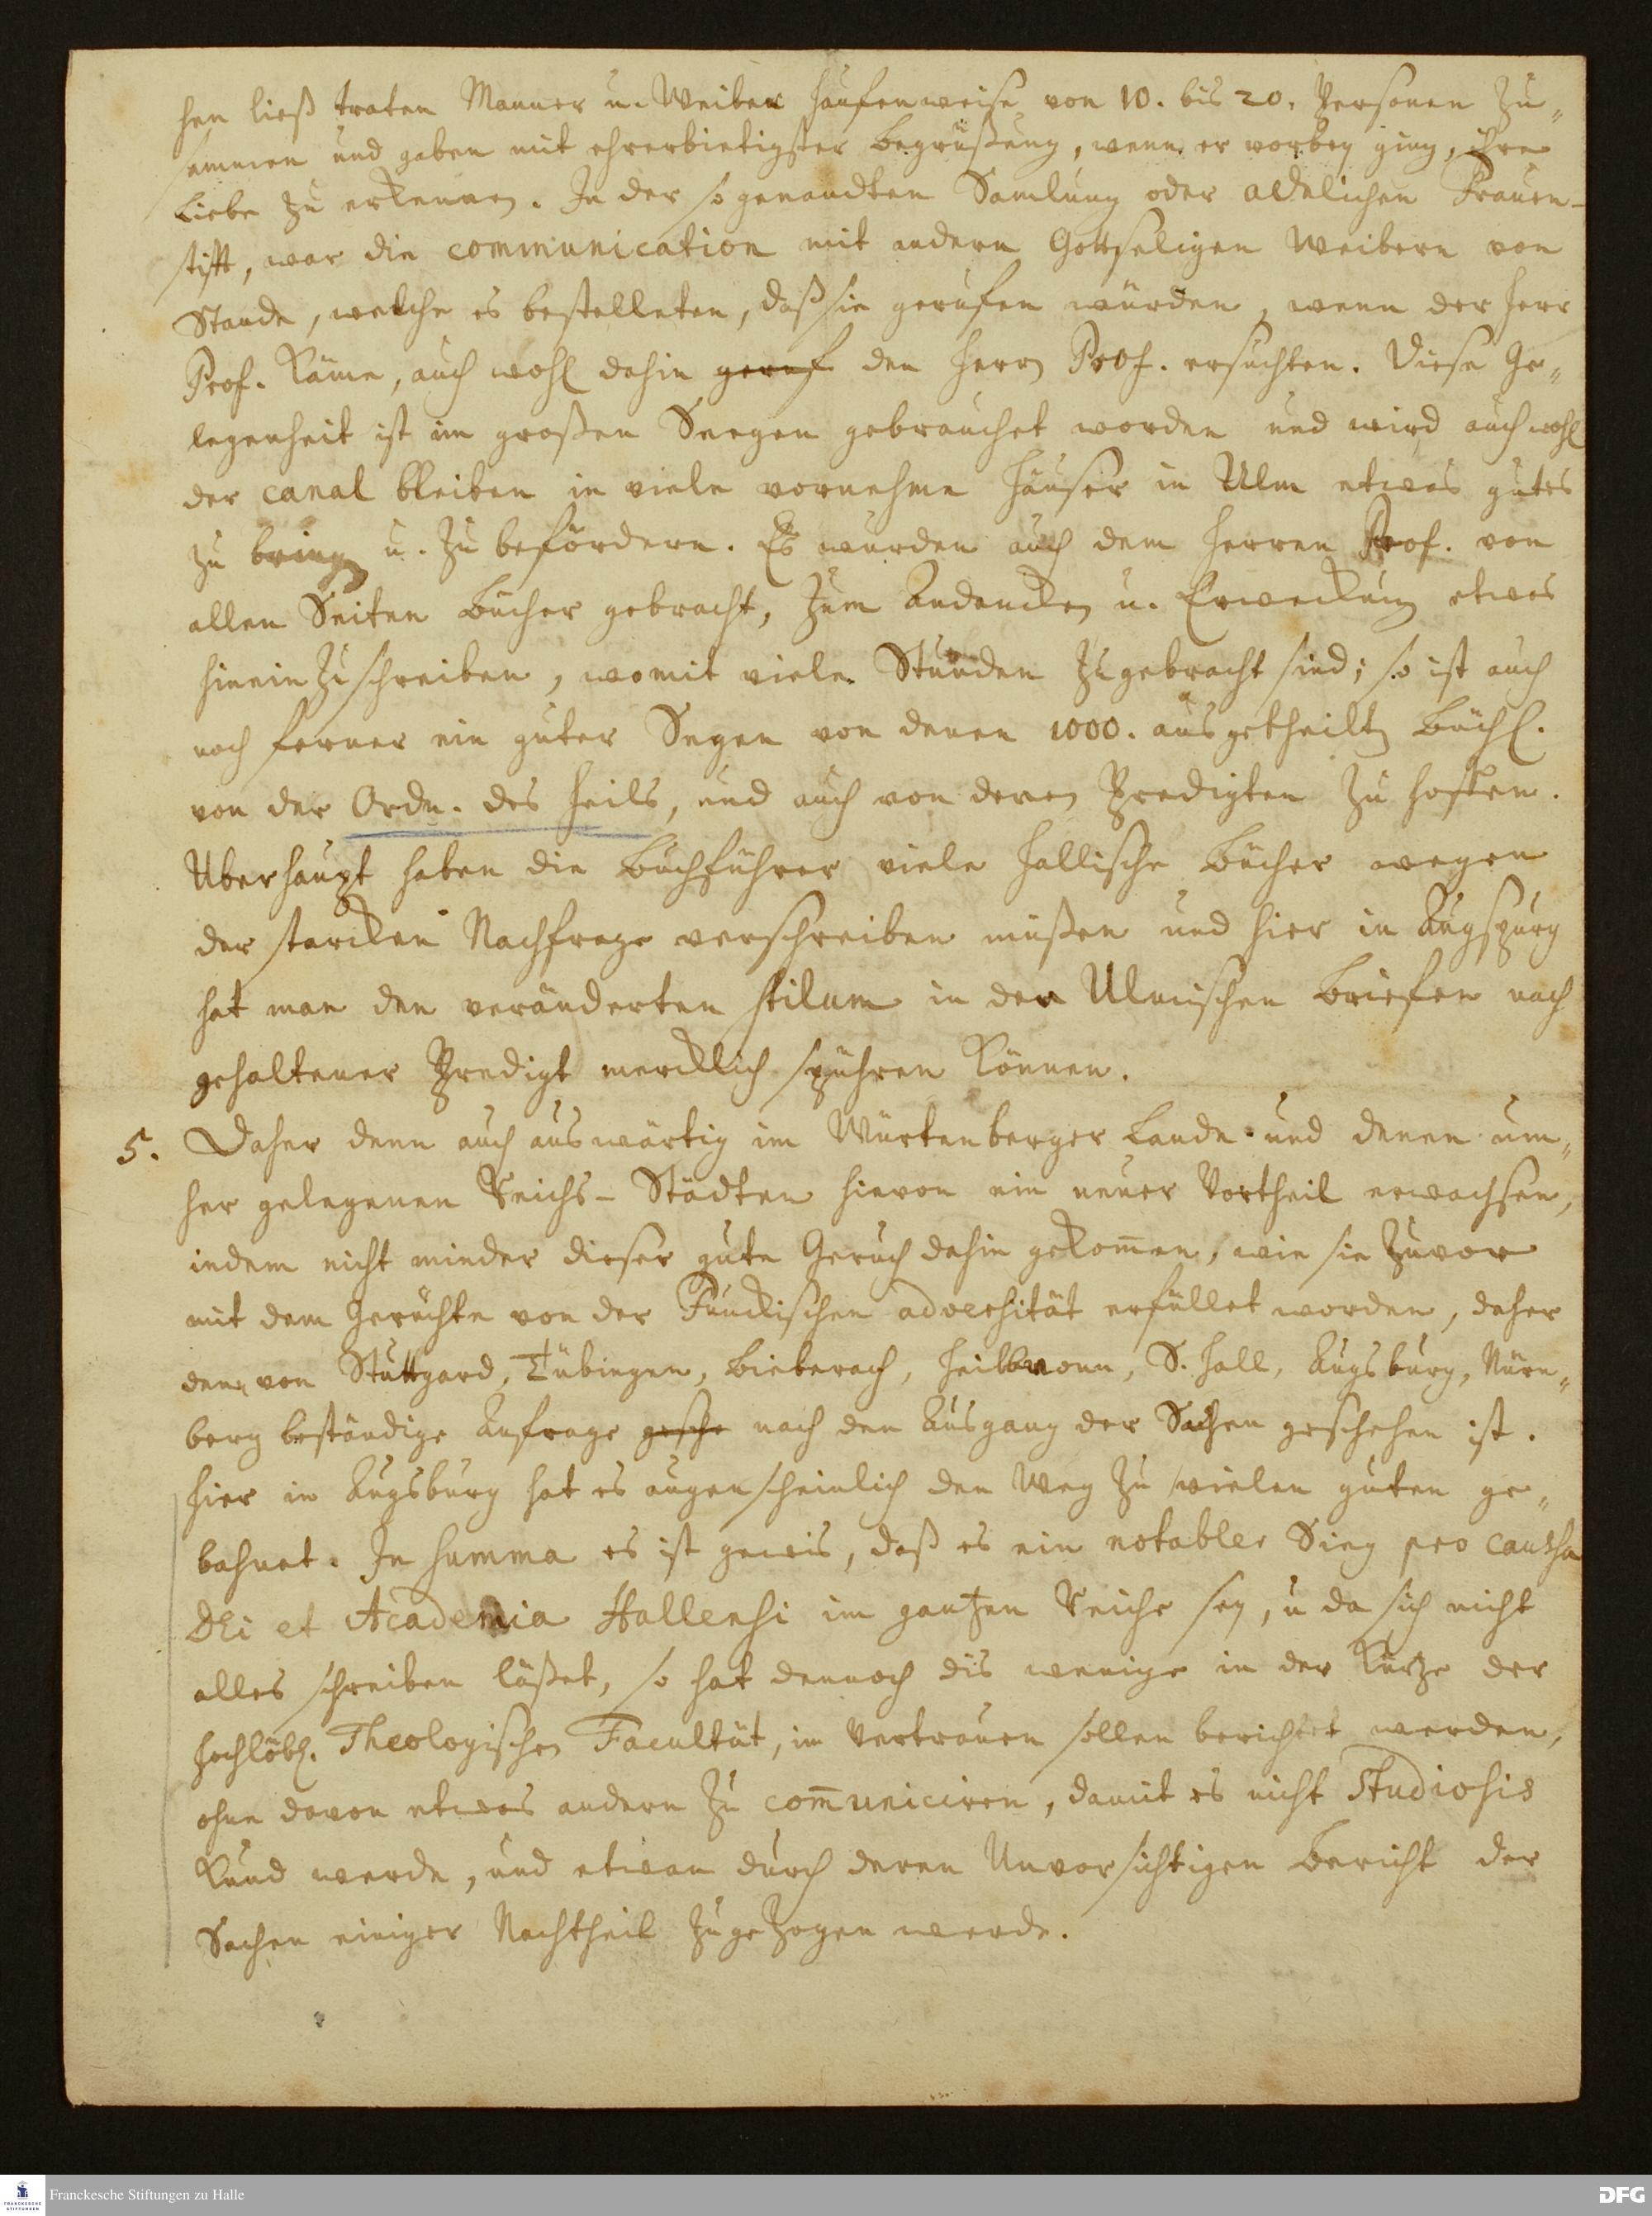 hen ließ traten Manner u. Weiber hauffenweise von 10. bis 20. Personen zu„
sammen und gaben mit ehrerbietigster Begrüßung, wenn er vorbey ging, ihre
Liebe zu erkennen. In der so genandten Samlung oder adelichen Frauen-
stifft, war die communication mit andern Gottseligen Weibern von
Stande, welche es bestelleten, daß sie gerufen würden, wenn der Herr
Prof. käme, auch wohl dahin geruf den Herrn Prof. ersuchten. Diese Ge„
legenheit ist im großen Seegen gebrauchet worden und wird auch wohl
der canal bleiben in viele vornehme Häuser in Ulm etwas gutes
zu bringen u. zu befördern. Es wurden auch dem Herren Prof. von
allen Seiten Bücher gebracht, zum Andencken u. Erweckung etwas
hinein zu schreiben, womit viele Stunden zugebracht sind; so ist auch
noch ferner ein guter Segen von denen 1000. ausgetheilten Büchl.
von der Ordn. des Heils, und auch von deren Predigten zu hoffen.
Uberhaupt haben die Buchführer viele Hallische Bücher wegen
der starcken Nachfrage verschreiben müßen und hier in Augspurg
hat man den veränderten stilum in den Ulmischen Briefen nach
gehaltener Predigt mercklich spühren können.
5. Daher denn auch auswärtig im Würtenberger Lande und denen um„
her gelegenen Reichs-Städten hievon ein neuer Vortheil erwachsen,
indem nicht minder dieser gute Geruch dahin gekommen, wie sie zuvor
mit dem Gerüchte von der Funckischen adversität erfüllet worden, daher
denn von Stuttgard, Tübingen, Bieberach, Heilbronn, S. Hall, Augsburg, Nürn„
berg beständige Anfrage gesche nach den Ausgang der Sachen geschehen ist.
Hier in Augsburg hat es augenscheinlich den Weg zu vielen guten ge„
bahnet. In summa es ist gewis, daß es ein notabler Sieg pro caussa
DEi et Academia Hallensi im gantzen Reiche sey, u da sich nicht
alles schreiben läßet, so hat dennoch dis wenige in der Kürtze der
Hochlöbl. Theologischen Facultät, im Vertrauen sollen berichtet werden,
ohne davon etwas andern zu com̄uniciren, damit es nicht Studiosis
kund werde, und etwan durch deren Unvorsichtigen Bericht der
Sachen einiger Nachtheil zugezogen werde.
Franckesche Stiftungen zu Halle
DFG